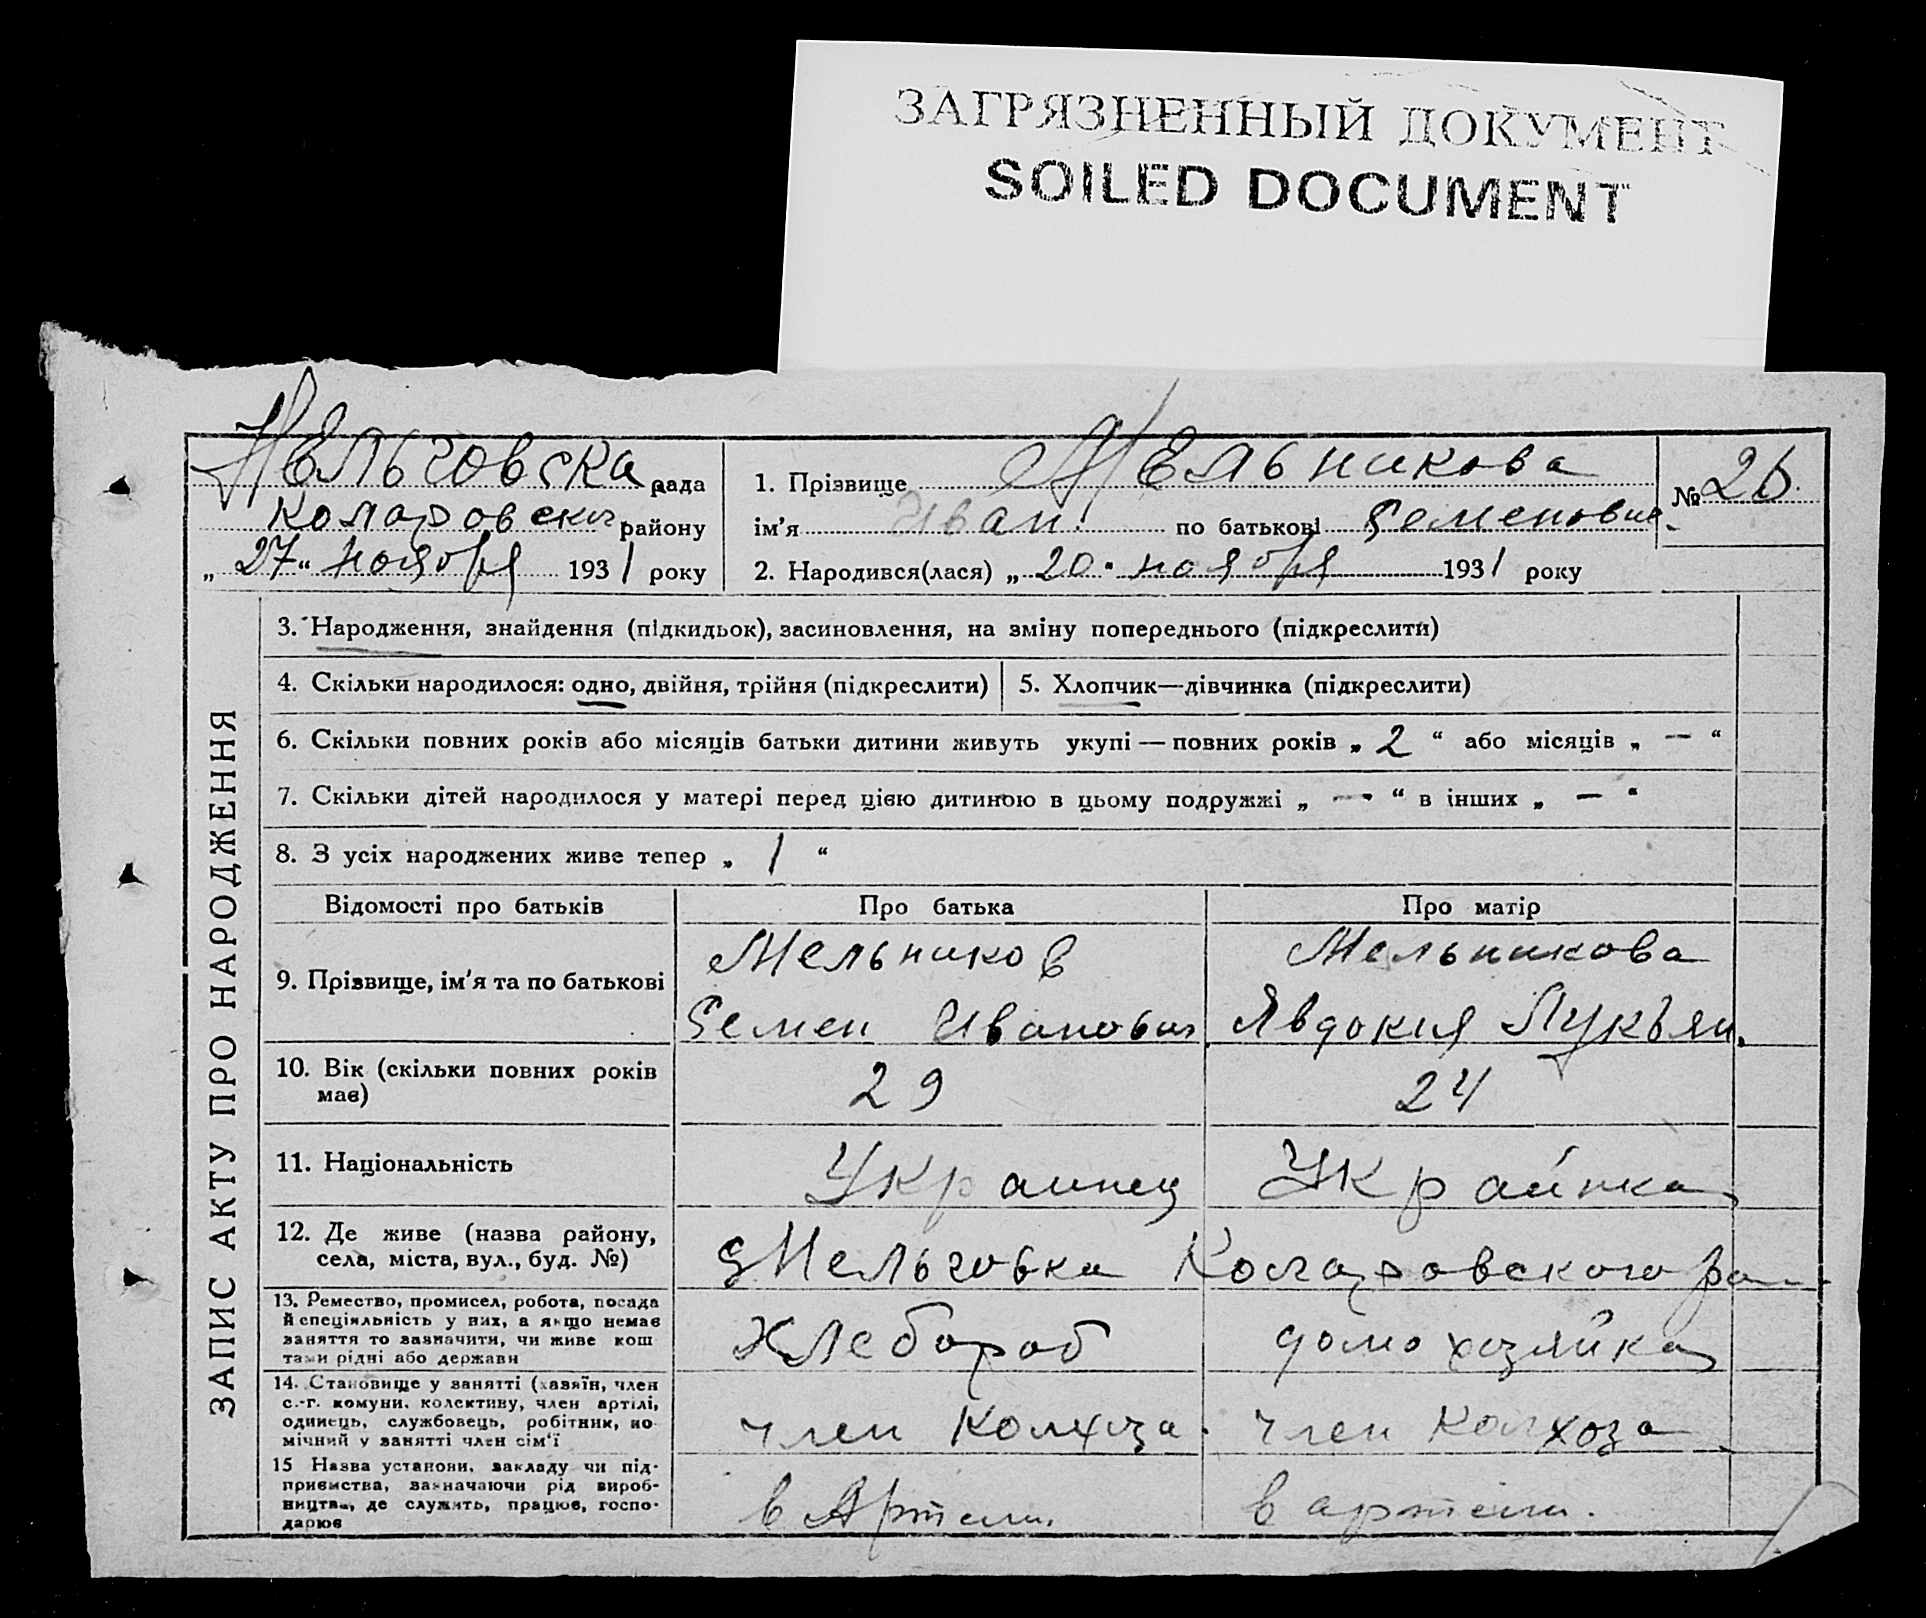 ЗАГРЯЗНЕННЫЙ ДОКУМЕНТ
SOILED DOCUMENT
Нельговска рада
Коларовског району
„ 27 “ ноября 1931 року
1. Прізвище Мельникова
ім’я Иван. по батькові Семенович
№ 26.
2. Народився(лася) „ 20 " ноября 1931 року
ЗАПИС АКТУ ПРО НАРОДЖЕННЯ
3. Народження, знайдення (підкидьок), засиновлення, на зміну попереднього (підкреслити)
4. Скільки народилося: одно, двійня, трійня (підкреслити) 5. Хлопчик—дівчинка (підкреслити)
6. Скільки повних років або місяців батьки дитини живуть укупі — повних років „ 2 “ або місяців „ — “
7. Скільки дітей народилося у матері перед цією дитиною в цьому подружжі „ — “ в інших „ — “
8. З усіх народжених живе тепер „ 1 “
Відомості про батьків Про батька Про матір
9. Прізвище, ім’я та по батькові
Мельников
Семен Иванович
Мельникова
Явдокия Лукъян.
10. Вік (скільки повних років
має)
29 24
11. Національність Украинец Украинка
12. Де живе (назва району,
села, міста, вул., буд. №)
Нельговка Коларовского
13. Ремество, промисел, робота, посада
й спеціяльність у них, а якщо немає
заняття то зазначити, чи живе кош
тами рідні або держави
Хлебороб домохозяйка
14. Становище у занятті (хазяїн, член
с.-г. комуни, колективу, член артілі,
одинець, службовець, робітник, по
мічний у занятті член сім’ї
член Колхоза. член Колхоза
15 Назва установи, закладу чи під-
приємства, зазначаючи рід вироб-
ництва, де служить, працює, госпо-
дарює
в Артели. в артели.